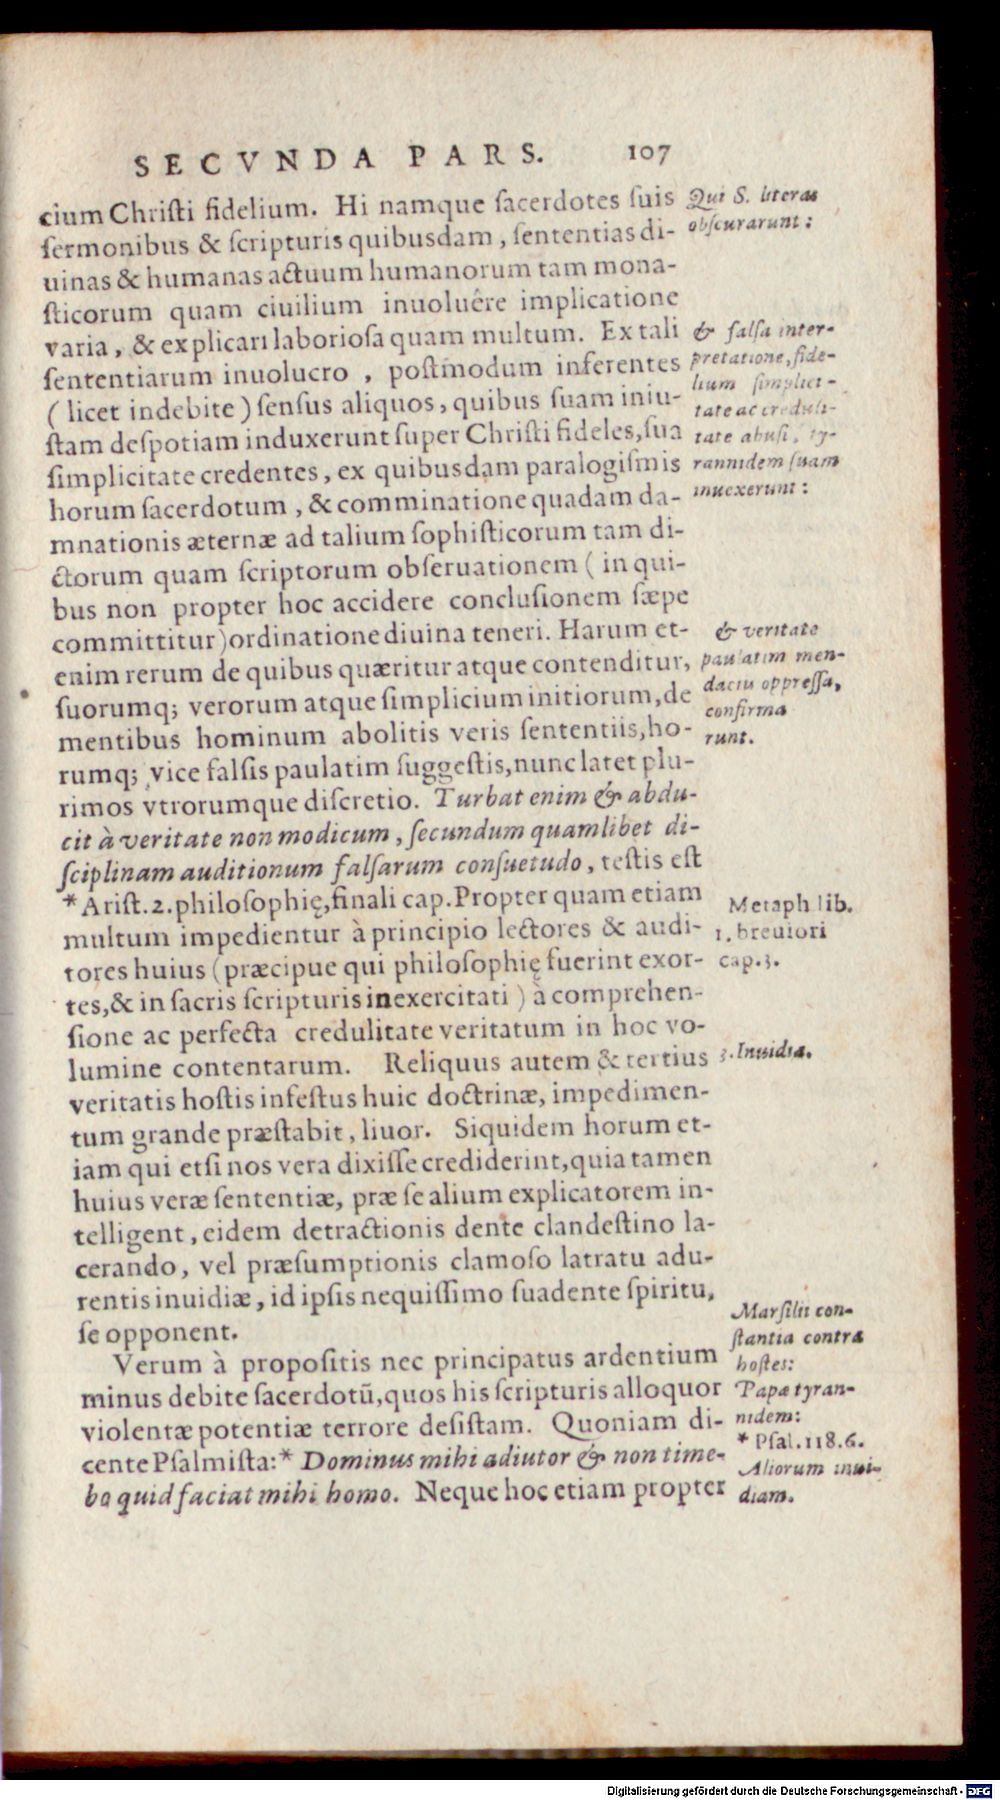 SECVNDA PARS. 107
cium Christi fidelium. Hi namque sacerdotes suis
sermonibus & scripturis quibusdam, sententias di-
uinas & humanas actuum humanorum tam mona-
sticorum quam ciuilium inuoluêre implicatione
varia, & explicari laboriosa quam multum. Ex tali
sententiarum inuolucro, postmodum inferentes
(licet indebite) sensus aliquos, quibus suam iniu-
stam despotiam induxerunt super Christi fideles, sua
simplicitate credentes, ex quibusdam paralogismis
horum sacerdotum, & comminatione quadam da-
mnationis æternæ ad talium sophisticorum tam di-
ctorum quam scriptorum obseruationem (in qui-
bus non propter hoc accidere conclusionem sæpe
committitur) ordinatione diuina teneri. Harum et-
enim rerum de quibus quæritur atque contenditur,
suorumq; verorum atque simplicium initiorum, de
mentibus hominum abolitis veris sententiis, ho-
rumq; vice falsis paulatim suggestis, nunc latet plu-
rimos vtrorumque discretio. Turbat enim & abdu-
cit à veritate non modicum, secundum quamlibet di-
sciplinam auditionum falsarum consuetudo, testis est
*Arist. 2. philosophię, finali cap. Propter quam etiam
multum impedientur à principio lectores & audi-
tores huius (præcipue qui philosophię fuerint exor-
tes, & in sacris scripturis inexercitati) à comprehen-
sione ac perfecta credulitate veritatum in hoc vo-
lumine contentarum. Reliquus autem & tertius
veritatis hostis infestus huic doctrinæ, impedimen-
tum grande præstabit, liuor. Siquidem horum et-
iam qui etsi nos vera dixisse crediderint, quia tamen
huius veræ sententiæ, præ se alium explicatorem in-
telligent, eidem detractionis dente clandestino la-
cerando, vel præsumptionis clamoso latratu adu-
rentis inuidiæ, id ipsis nequissimo suadente spiritu,
se opponent.
Verum à propositis nec principatus ardentium
minus debite sacerdotū, quos his scripturis alloquor
violentæ potentiæ terrore desistam. Quoniam di-
cente Psalmista:* Dominus mihi adiutor & non time-
bo quid faciat mihi homo. Neque hoc etiam propter
Qui S. literas
obscurarunt:
& falsa inter-
pretatione, fide-
lium simplici-
tate ac creduli-
tate abusi, ty-
rannidem suam
inuexerunt:
& veritate
paulatim men-
daciis oppressa,
confirma
runt.
Metaph. lib.
1. breuiori
cap. 3.
3. Inuidia.
Marsilii con-
stantia contra
hostes:
Papæ tyran-
nidem:
* Psal. 118. 6.
Aliorum inui-
diam.
Digitalisierung gefördert durch die Deutsche Forschungsgemeinschaft - DFG